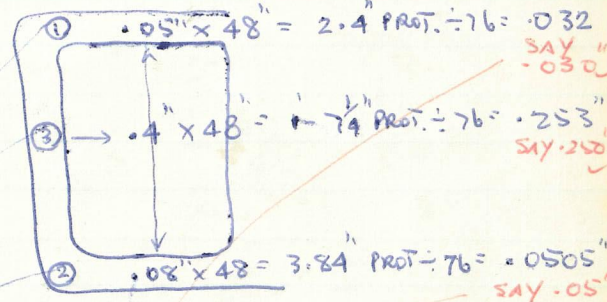 ① .05" x 48" = 2.4" PROT. ÷ 76 = .032
SAY
.030"
③ → .4" x 48" = 1- 7¼" PROT. ÷ 76 = .253"
SAY .250"
② .08" x 48 = 3.84" PROT ÷ 76 = .0505"
SAY .05"